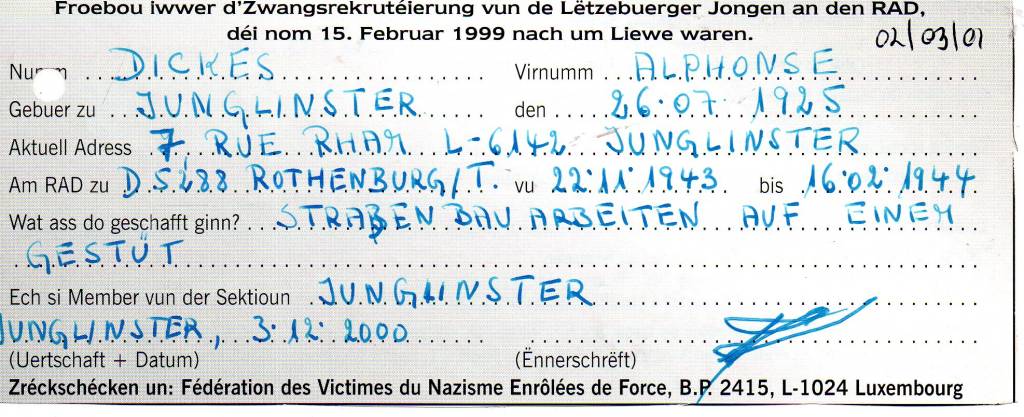 Froebou iwwer d'Zwangsrekrutéierung vun de Lëtzebuerger Jongen an den RAD,
déi nom 15. Februar 1999 nach um Liewe waren.
02/03/01
DICKES Virnumm ALPHONSE
Gebuer zu JUNGLINSTER den 26.07.1925
Aktuell Adress 7, RUE RHAM L-6142 JUNGLINSTER
Am RAD zu D S288 ROTHENBURG/T. vu 22.11.1943 bis 16.02.1944
Wat ass do geschafft ginn? STRAßENBAUARBEITEN AUF EINEM
GESTÜT
Ech si Member vun der Sektioun JUNGLINSTER
JUNGLINSTER, 3.12.2000
(Uertschaft + Datum) (Ënnerschrëft)
Zréckschécken un: Fédération des Victimes du Nazisme Enrôlées de Force, B.P. 2415, L-1024 Luxembourg